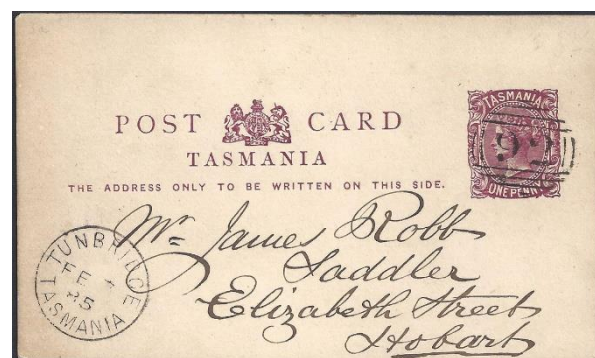 POST CARD
TASMANIA
THE ADDRESS ONLY TO BE WRITTEN ON THIS SIDE.
TASMANIA
ONE PENNY
92
Mr James Robb
Saddler
Elizabeth Street
Hobart
TUNBRIDGE
FE 4
85
TASMANIA